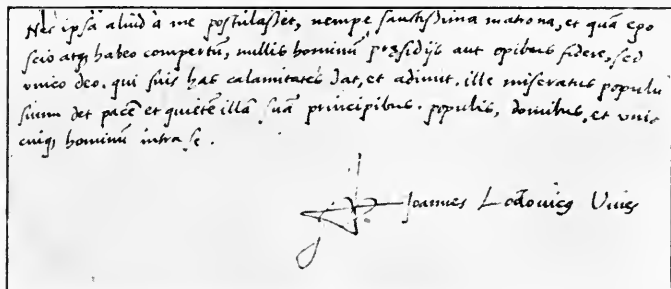 Nec ipsa aliud à me postulasset, nempe sanctissima matrona, et quā ego
scio atq; habeo compertū, nullis hominū præsidijs aut opibus fidere, sed
vnico deo. qui suis has calamitates dat, et adimit. ille miseratus populū
suum det pacē et quietē illā suā principibus. populis, domibus, et vnic
cuiq; hominū intra se.
Joannes Lodouicꝰ Viues